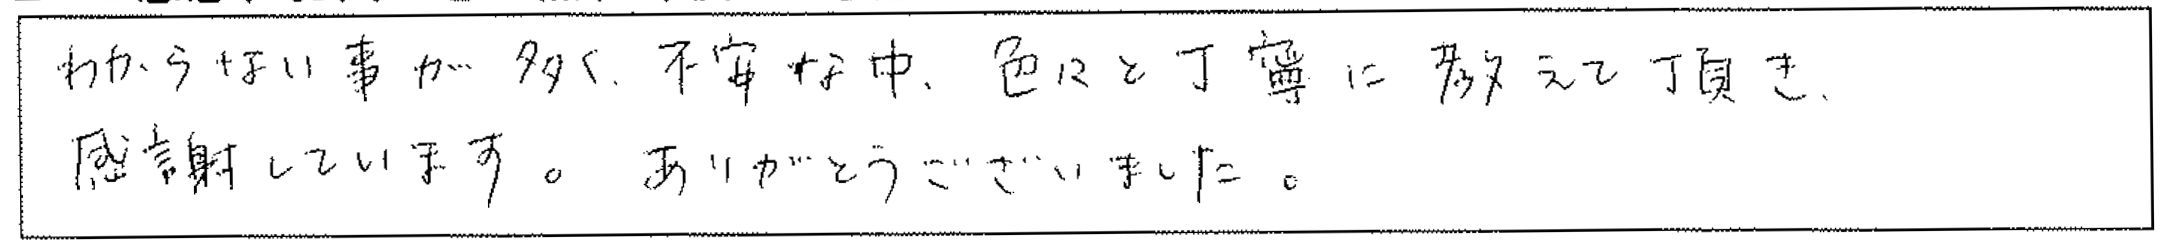 わからない事が多く、不安な中、色々と丁寧に教えて頂き、
感謝しています。ありがとうございました。